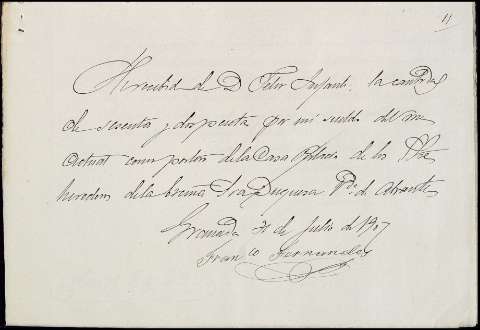 11
He recibido de D Felix Infante la cantidad
de sesenta y dos peseta por mi sueldo del mes
actual como portero de la Casa Palacio de los
herederos de la Exma Sra Duquesa Vda de Abrantes
Granada 31 de Julio de 1907
Franco Fernandez